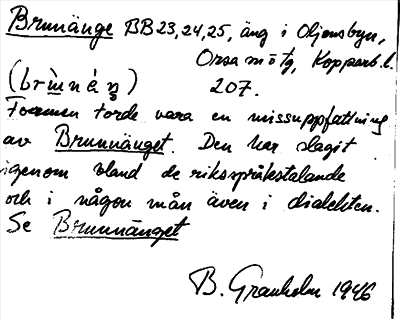 Brunnänge BB 23, 24, 25, äng i Oljonsbyn,
Orsa sn o tg, Kopparb. l.
207.
Formen torde vara en missuppfattning
av Brunnänget. Den har slagit
igenom bland de riksspråkstalande
och i någon mån även i dialekten.
Se Brunnänget
B. Granholm 1946